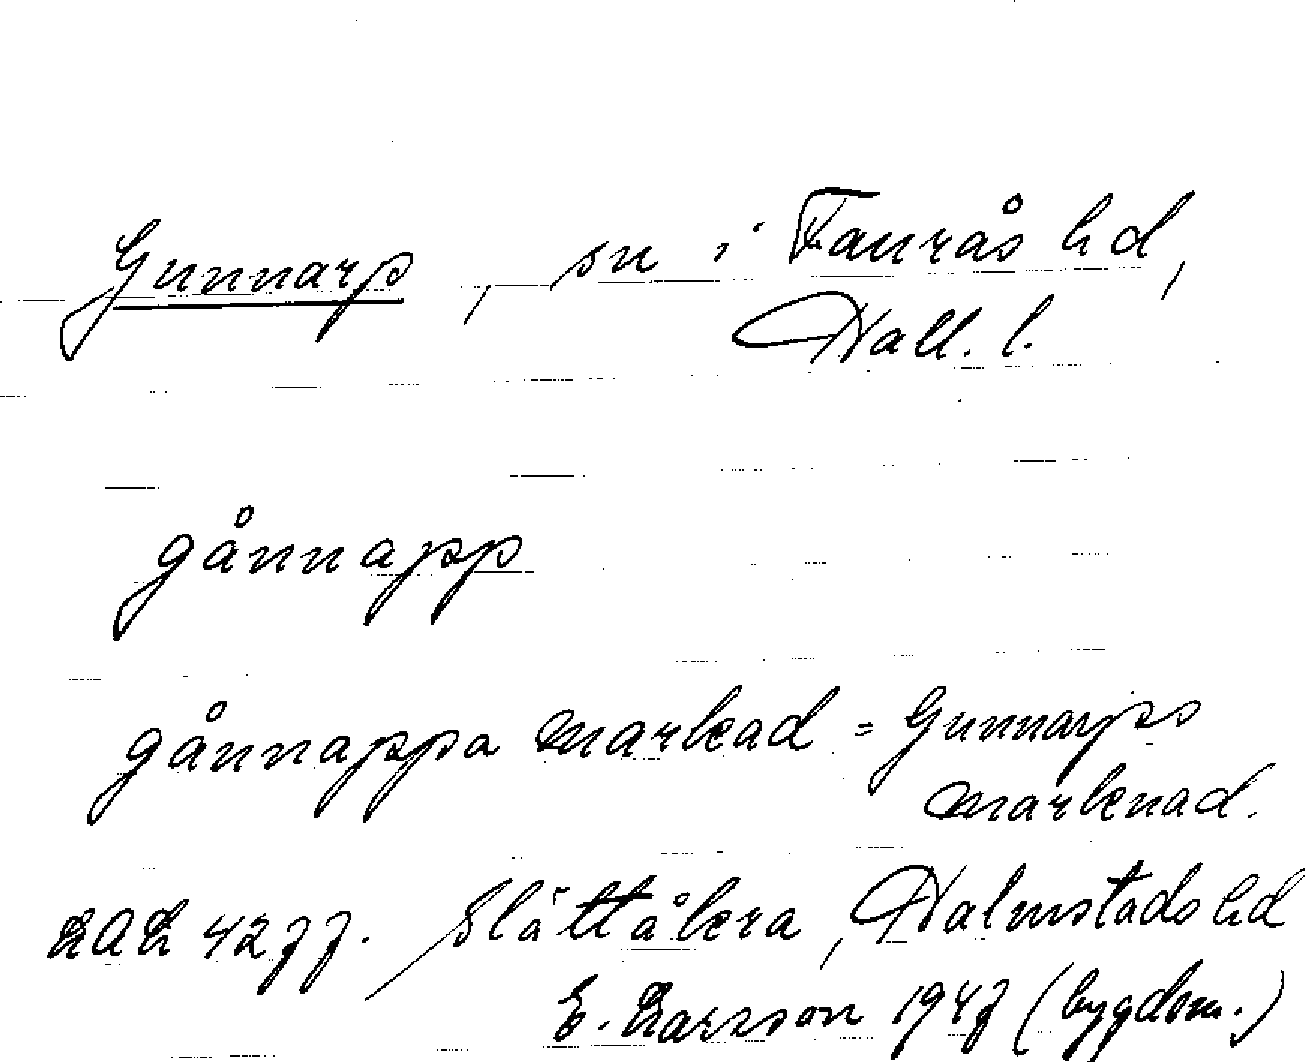 Gunnarp, sn i Faurås hd,
Hall. l.
gånnapp
gånnappa markad = Gunnarps
marknad.
LAL 4277. Slättåkra, Halmstads hd
E. Larsson 1947 (bygdem.)